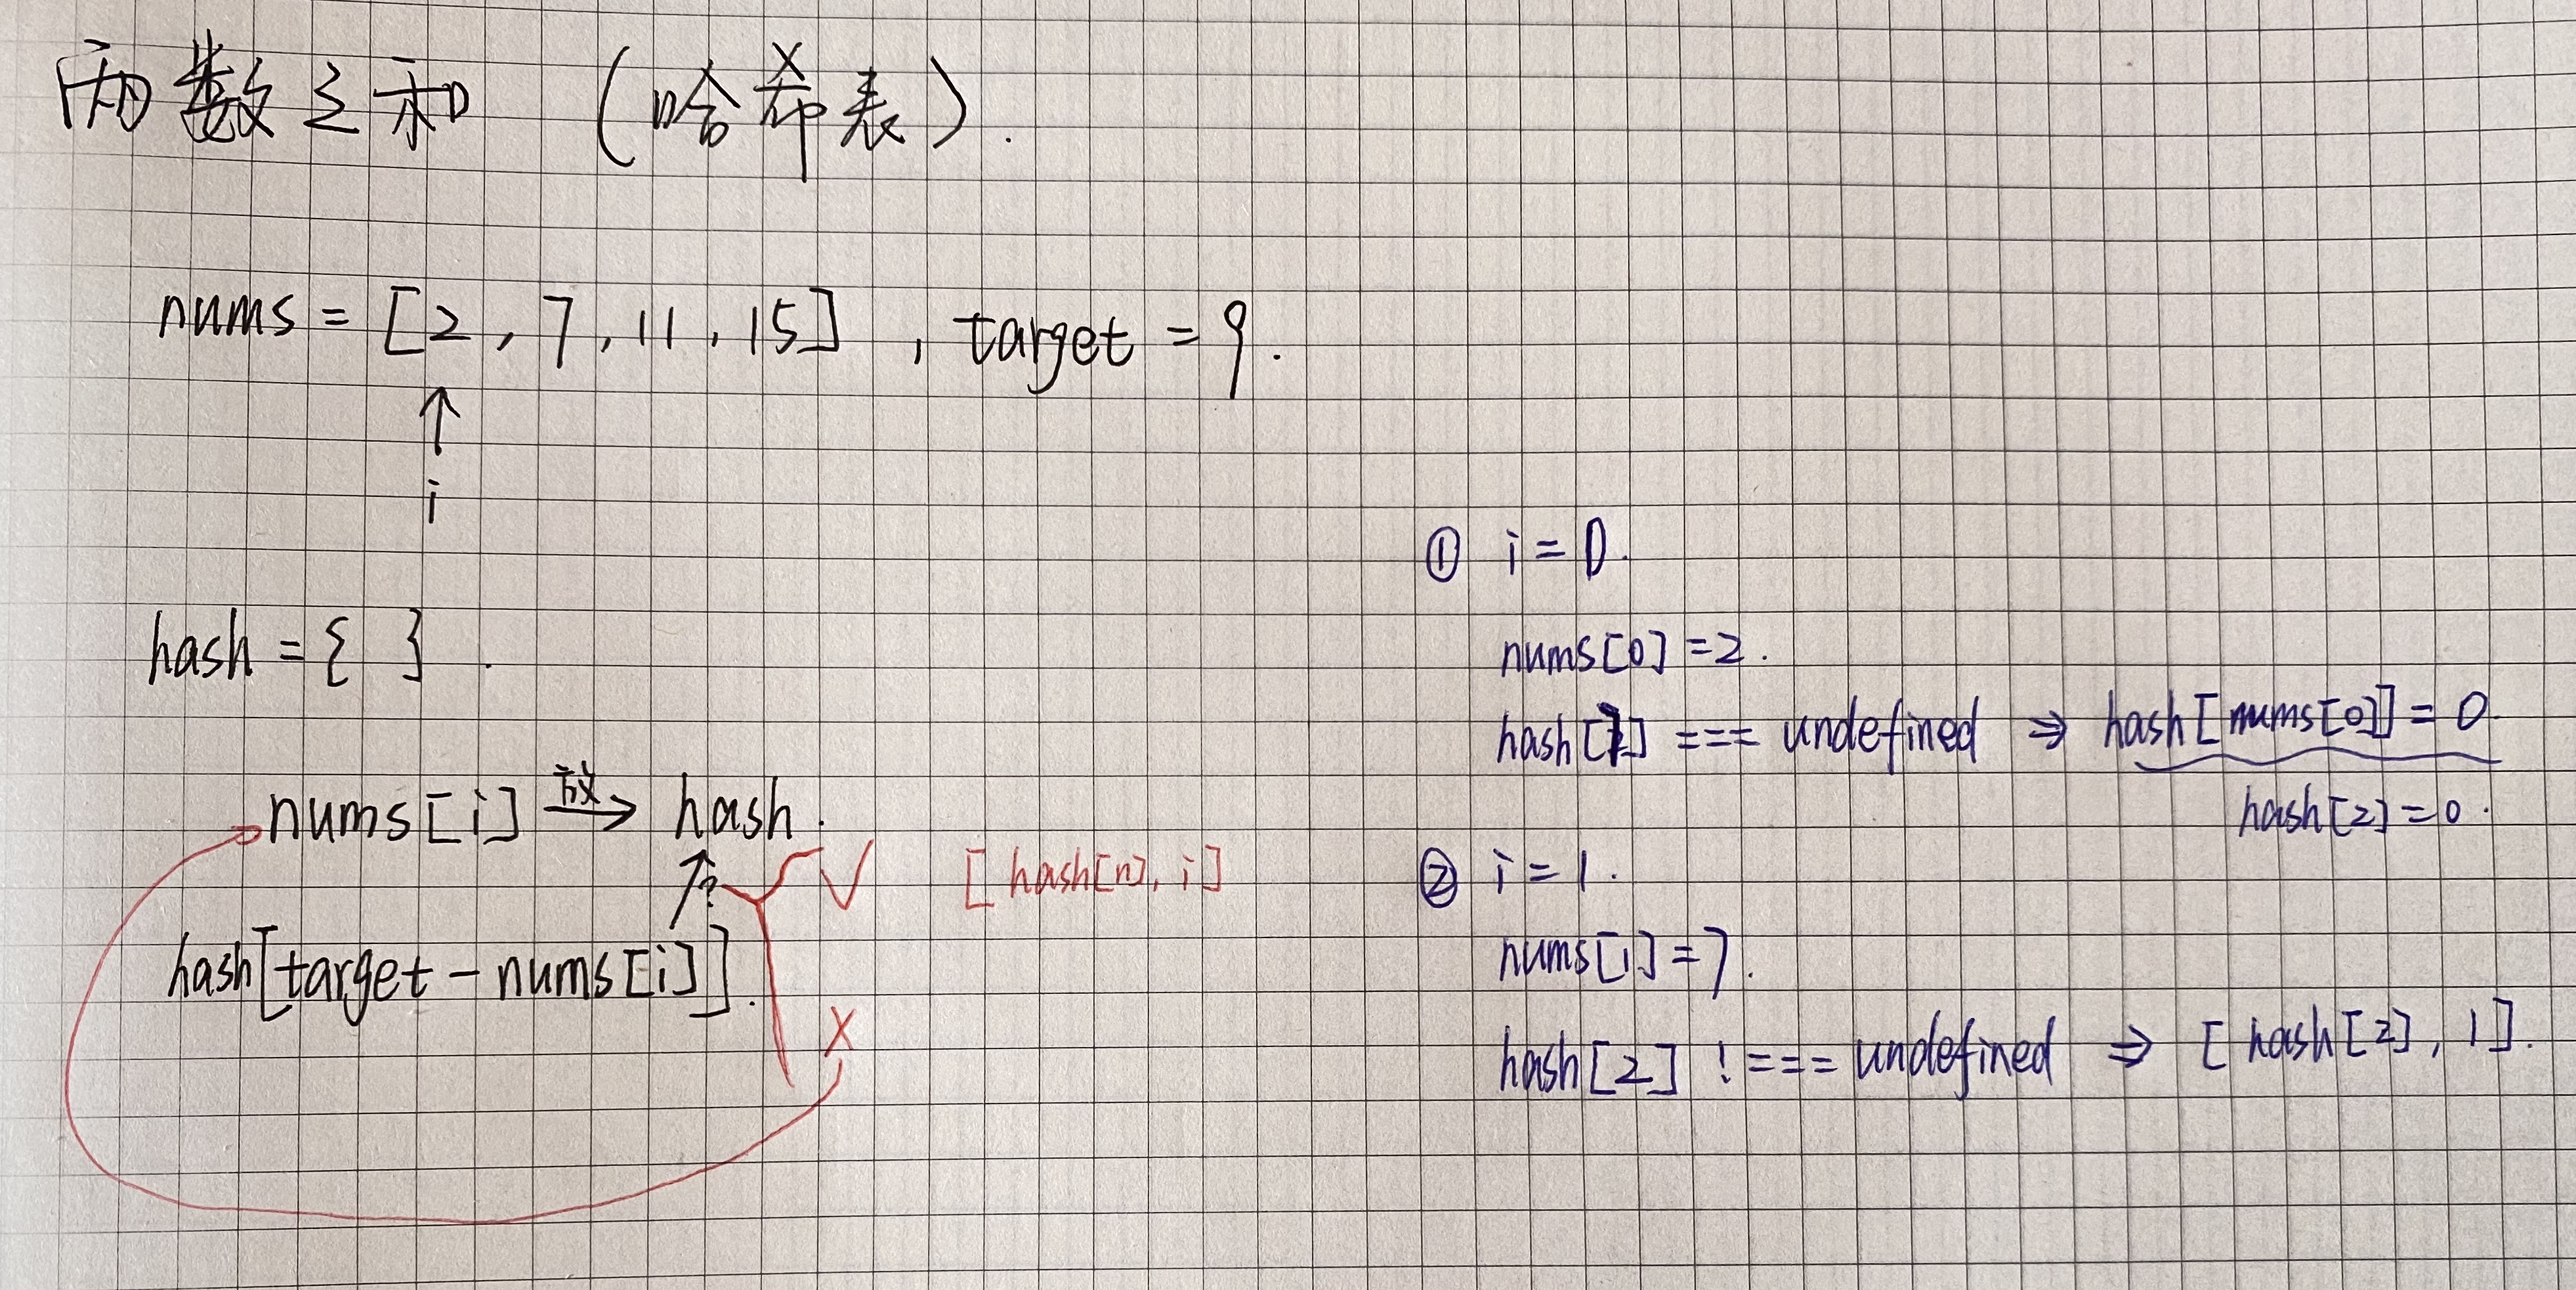 两数之和 (哈希表).
nums = [2, 7, 11, 15], target = 9.
↑
i
hash = { }.
nums[i] 放→ hash.
↑?
√ [hash[n], i]
hash[target - nums[i]].
X
① i = 0.
nums[0] = 2.
hash[7] === undefined ⇒ hash[nums[0]] = 0.
hash[2] = 0.
② i = 1.
nums[1] = 7.
hash[2] !=== undefined ⇒ [hash[2], 1].